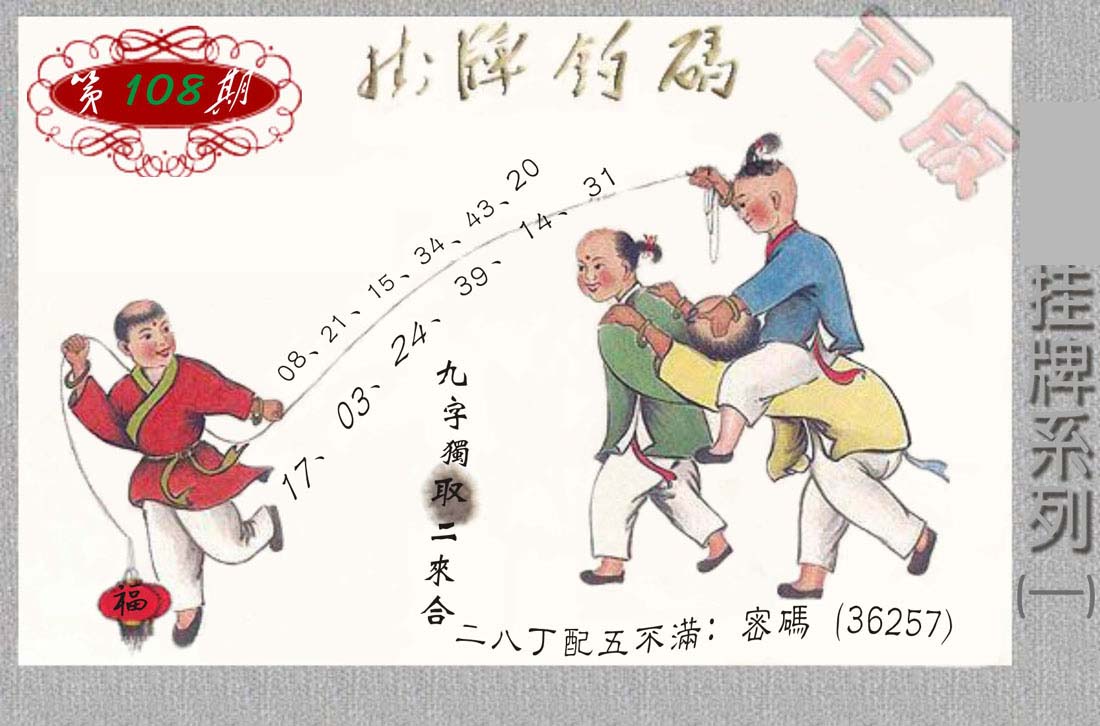 第108期
掛牌釣碼
正版
08、21、15、34、43、20
17、03、24、39、14、31
九字獨取二來合
二八丁配五不滿：密碼（36257）
福
挂牌系列(一)